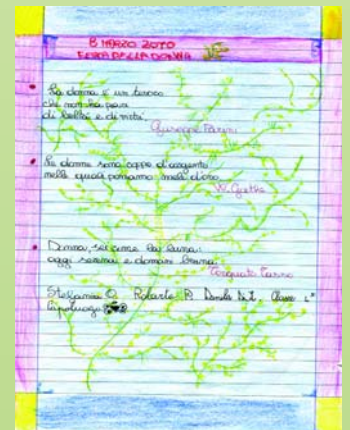 8 MARZO 2010
FESTA DELLA DONNA
La donna è un tesoro
che non ha pari
di beltà e di virtù.
Giuseppe Parini
Le donne sono coppe d'argento
nelle quali poniamo mele d'oro.
W. Goethe
Donna, sei come la luna:
oggi serena e domani bruna.
Torquato Tasso
Stefania O. Roberto P. Classe
Capoluogo